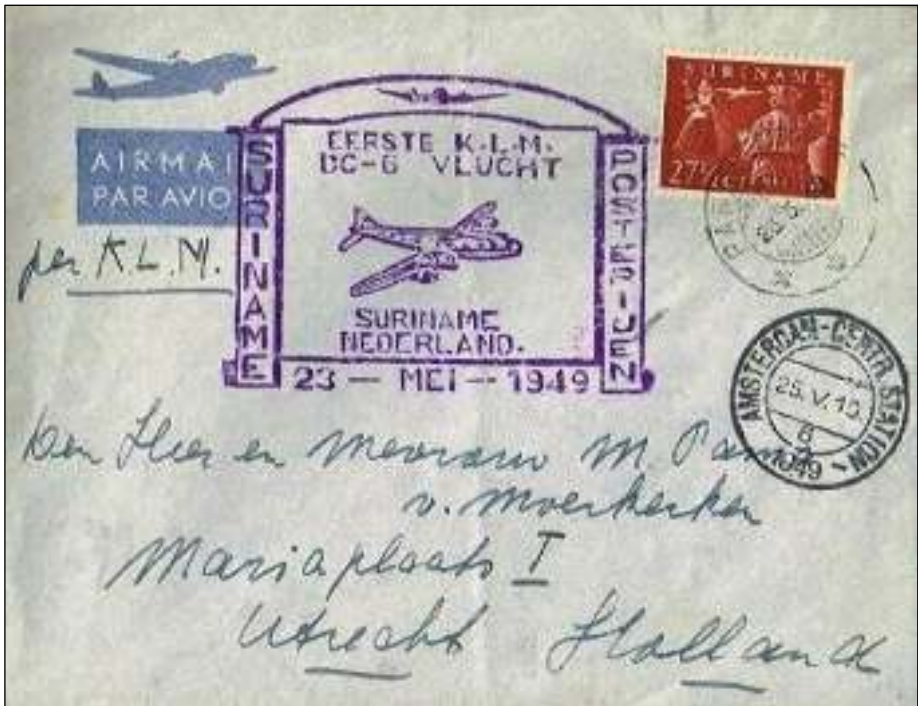 AIRMAI
PAR AVIO
per K.L.M.
SURINAME
EERSTE K.L.M.
DC-6 VLUCHT
SURINAME
NEDERLAND.
POSTERIJEN
23 — MEI — 1949
SURINAME
27½
AMSTERDAM-CENTR. STATION
25.V.
1949
Den Heer en Mevrouw M.
v. Moerkerken
Mariaplaats I
Utrecht Holland